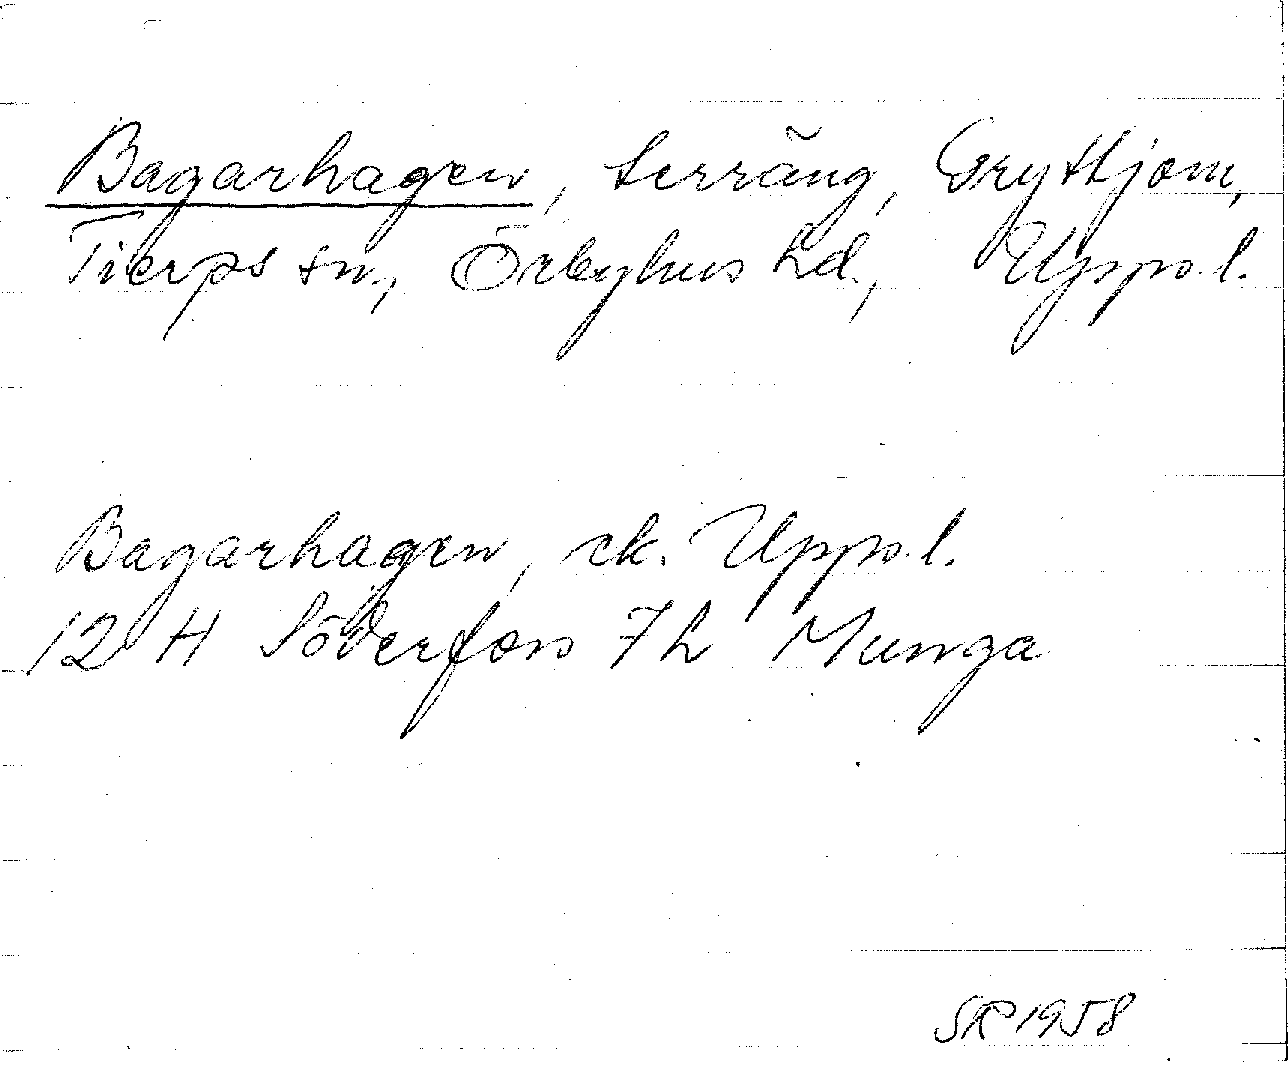 Bagarhagen, terräng, Gryttjom,
Tierps sn., Örbyhus hd, Uppsl.
Bagarhagen, ek. Uppsl.
12 H Söderfors 7 h Munga
SR 1958